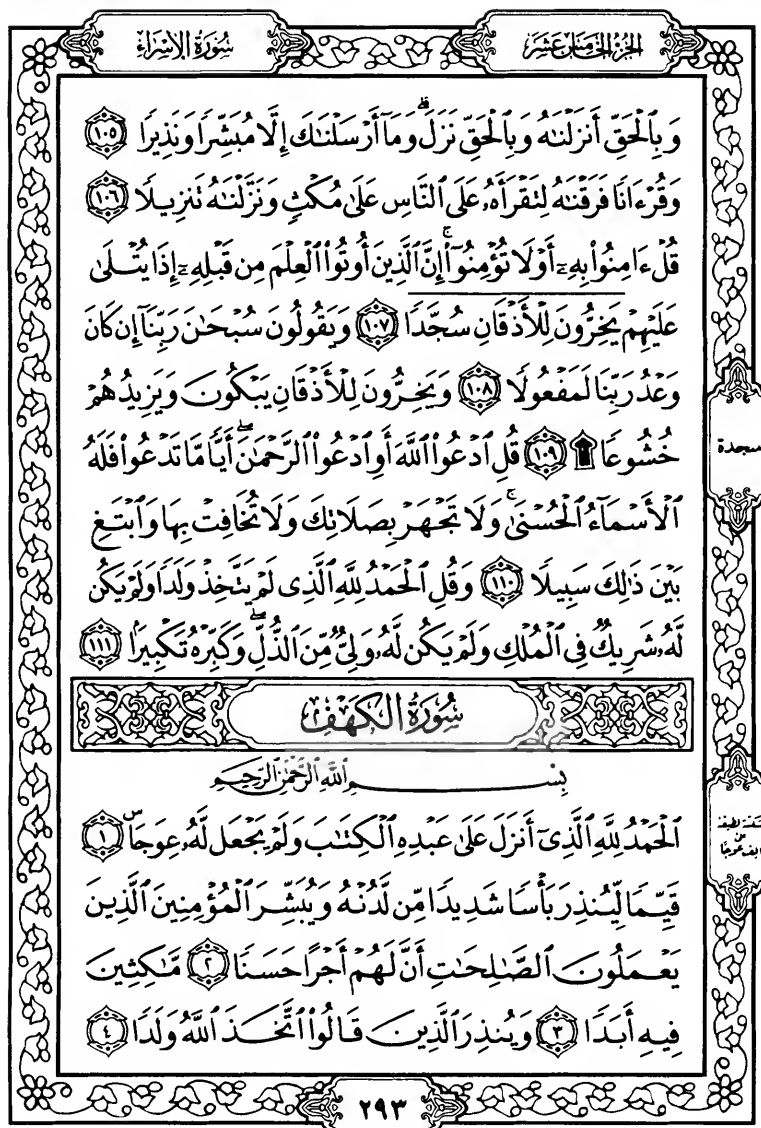 الجزء الخامس عشر
سورة الإسراء
وَبِٱلْحَقِّ أَنزَلْنَـٰهُ وَبِٱلْحَقِّ نَزَلَ ۗ وَمَآ أَرْسَلْنَـٰكَ إِلَّا مُبَشِّرًا وَنَذِيرًا ١٠٥
وَقُرْءَانًا فَرَقْنَـٰهُ لِتَقْرَأَهُۥ عَلَى ٱلنَّاسِ عَلَىٰ مُكْثٍ وَنَزَّلْنَـٰهُ تَنزِيلًا ١٠٦
قُلْ ءَامِنُوا۟ بِهِۦٓ أَوْ لَا تُؤْمِنُوٓا۟ ۚ إِنَّ ٱلَّذِينَ أُوتُوا۟ ٱلْعِلْمَ مِن قَبْلِهِۦٓ إِذَا يُتْلَىٰ
عَلَيْهِمْ يَخِرُّونَ لِلْأَذْقَانِ سُجَّدًا ١٠٧ وَيَقُولُونَ سُبْحَـٰنَ رَبِّنَآ إِن كَانَ
وَعْدُ رَبِّنَا لَمَفْعُولًا ١٠٨ وَيَخِرُّونَ لِلْأَذْقَانِ يَبْكُونَ وَيَزِيدُهُمْ
خُشُوعًا ۩ ١٠٩ قُلِ ٱدْعُوا۟ ٱللَّهَ أَوِ ٱدْعُوا۟ ٱلرَّحْمَـٰنَ ۖ أَيًّا مَّا تَدْعُوا۟ فَلَهُ
ٱلْأَسْمَآءُ ٱلْحُسْنَىٰ ۚ وَلَا تَجْهَرْ بِصَلَاتِكَ وَلَا تُخَافِتْ بِهَا وَٱبْتَغِ
بَيْنَ ذَٰلِكَ سَبِيلًا ١١٠ وَقُلِ ٱلْحَمْدُ لِلَّهِ ٱلَّذِى لَمْ يَتَّخِذْ وَلَدًا وَلَمْ يَكُن
لَّهُۥ شَرِيكٌ فِى ٱلْمُلْكِ وَلَمْ يَكُن لَّهُۥ وَلِىٌّ مِّنَ ٱلذُّلِّ ۖ وَكَبِّرْهُ تَكْبِيرًا ١١١
سجدة
سورة الكهف
بِسْمِ ٱللَّهِ ٱلرَّحْمَـٰنِ ٱلرَّحِيمِ
ٱلْحَمْدُ لِلَّهِ ٱلَّذِىٓ أَنزَلَ عَلَىٰ عَبْدِهِ ٱلْكِتَـٰبَ وَلَمْ يَجْعَل لَّهُۥ عِوَجَا ۜ ١
قَيِّمًا لِّيُنذِرَ بَأْسًا شَدِيدًا مِّن لَّدُنْهُ وَيُبَشِّرَ ٱلْمُؤْمِنِينَ ٱلَّذِينَ
يَعْمَلُونَ ٱلصَّـٰلِحَـٰتِ أَنَّ لَهُمْ أَجْرًا حَسَنًا ٢ مَّـٰكِثِينَ
فِيهِ أَبَدًا ٣ وَيُنذِرَ ٱلَّذِينَ قَالُوا۟ ٱتَّخَذَ ٱللَّهُ وَلَدًا ٤
لطيفة
على
عوجا
٢٩٣